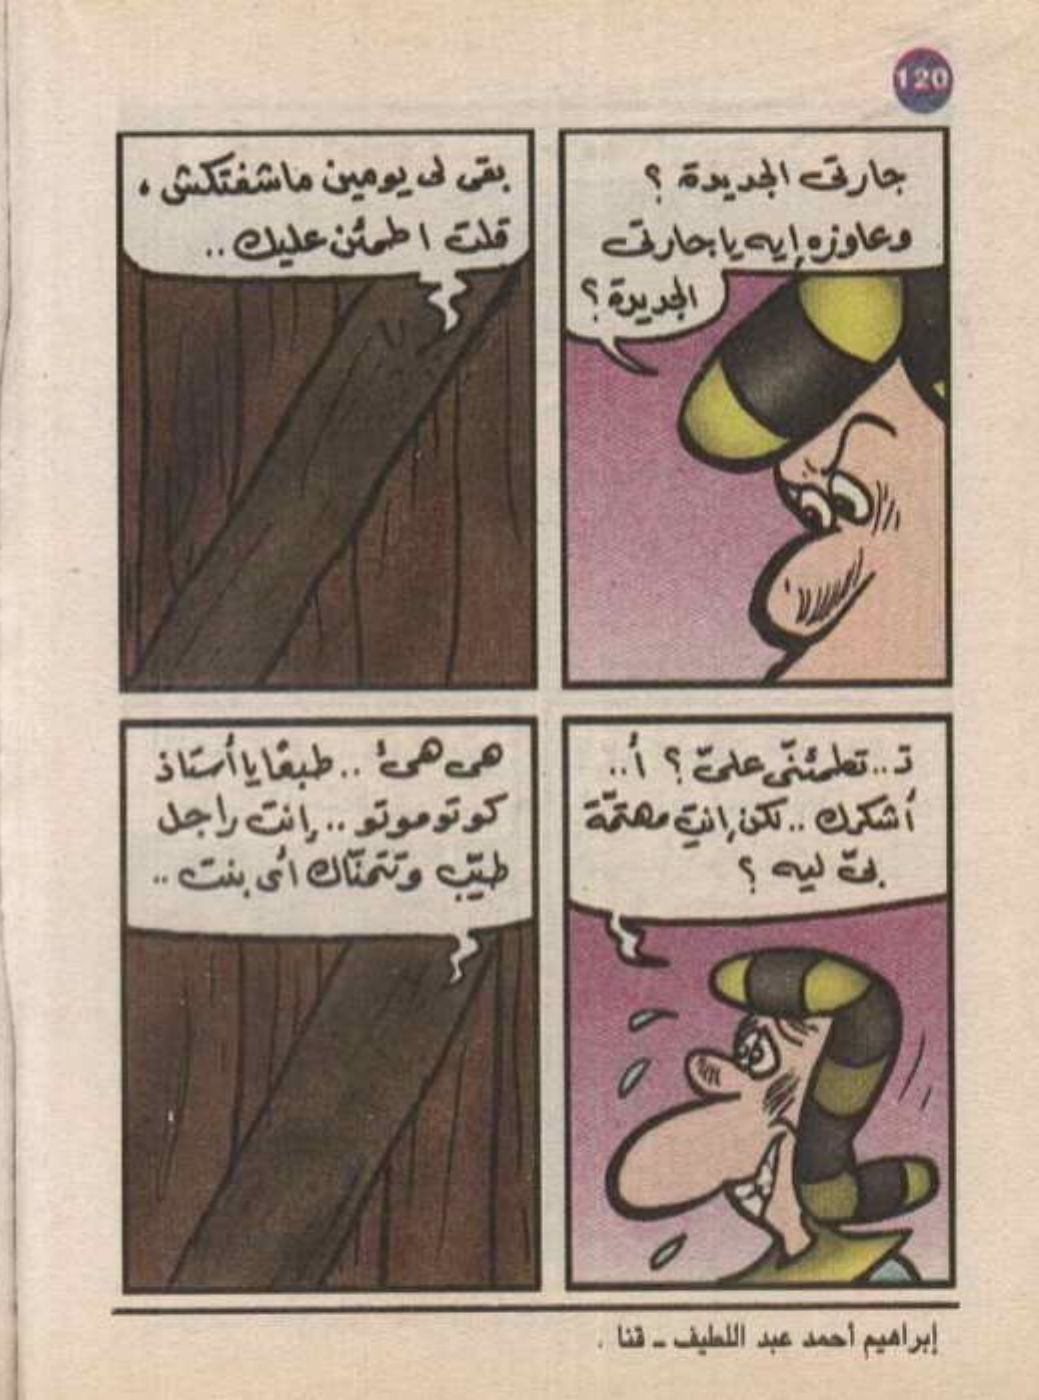 120
جارتى الجديدة ؟
وعاوزه إيه ياجارتى
الجديدة ؟
بقى لى يومين ماشفتكش ،
قلت اطمئن عليك ..
تـ .. تطمئنّى علىّ ؟ أ ..
أشكرك .. لكن إنتِ مهتمّة
بىّ ليه ؟
هى هىء .. طبعًا يا أستاذ
كوتوموتو .. إنت راجل
طيّب وتتمنّاك أى بنت ..
إبراهيم أحمد عبد اللطيف ـ قنا .